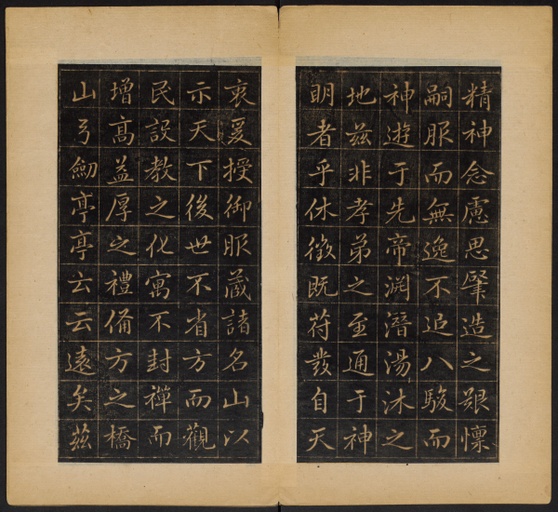 精神念慮思肇造之艱懍
嗣服而無逸不追八駿而
神遊于先帝淵潛湯沐之
地茲非孝弟之至通于神
眀者乎休徵既苻發自天
衷爰授御服藏諸名山以
示天下後世不省方而觀
民設教之化寓不封禪而
增髙益厚之禮俻方之橋
山弓劒亭亭云云遠矣茲